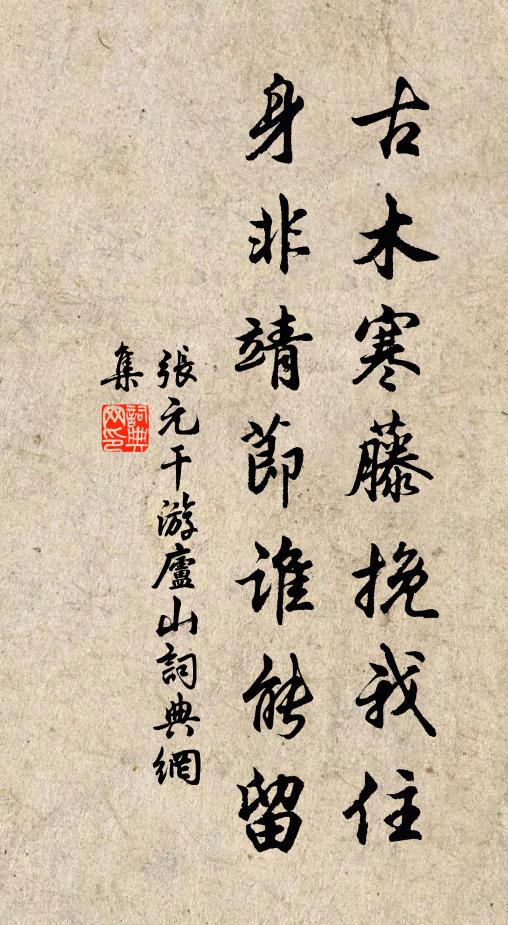 古木寒藤挽我住
身非靖節谁能留
張元干游廬山詞典網
集
詞典
网印